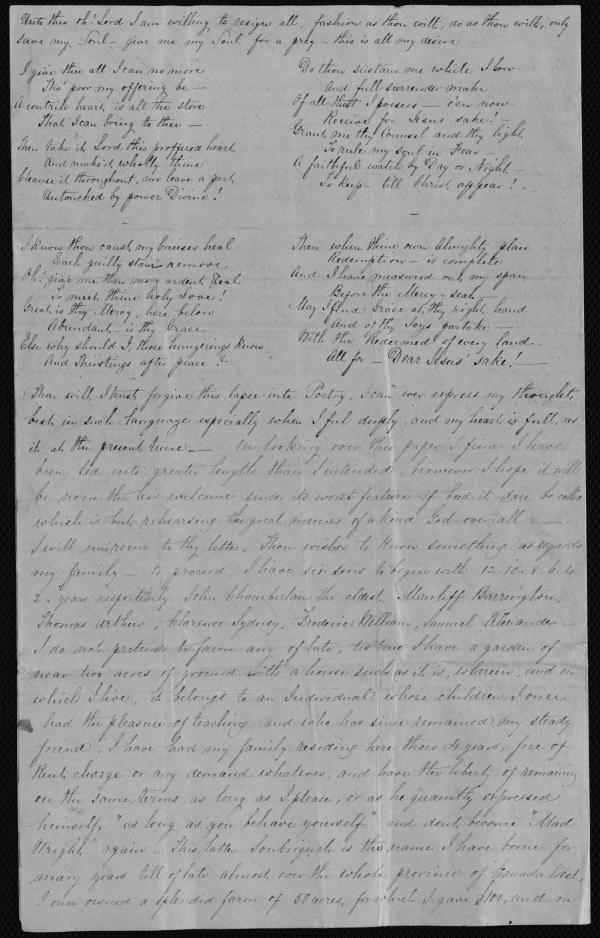 Unto thee oh! Lord I am willing to resign all, fashion as thou wilt, do as thou wilt, only
save my Soul – give me my Soul for a prey – this is all my desire
I give thee all I can no more
Tho' poor my offering be –
A contrite heart, is all the store
That I can bring to thee –
Then take it Lord this proffered heart
And make it wholly thine
Cleanse it throughout, nor leave a part
Untouched by power Divine!
Do thou sustain me while I bow
And full surrender make
Of all that I possess – e'en now
Receive for Jesus sake! –
Grant me thy Counsel and thy light
To rule my soul in Fear –
A faithful watch by Day or Night –
To keep – till Christ appear! –
I know thou canst my bruises heal
Each guilty stain remove,
Oh! give me then more ardent Zeal
To meet thine holy Love!
Great is thy Mercy, here below
Abundant – is thy Grace
Else why should I, those hungerings know
And Thirstings after peace? –
Then when thine own Almighty plan
Redemption – is complete
And I have measured out my span
Before the Mercy-seat
May I find Grace at thy right hand
And of thy Joys partake –
With the Redeemed of every land –
All for – Dear Jesus' sake! –
Thou wilt, I trust, forgive this lapse into Poetry, I can ever express my thoughts
best in such language especially when I feel deeply, and my heart is full, as
it is at the present time – On looking over this paper I find I have
been led into greater lengths than I intended, however I hope it will
be none the less welcome since its worst feature if bad it dare be called
which is but rehearsing the great mercies of a kind God over all —
I will now recur to thy letter. Thou wishes to know something as regards
my family – to proceed, I have six sons to begin with 12. 10. 8. 6. 4
2. years respectively John Chamberlain the eldest, Manliff Barrington,
Thomas Arthur, Clarence Sydney, Frederic William, Samuel Alexander –
I do not pretend to farm any of late, tis true I have a garden of
near two acres of ground with a house such as it is, wherein, and on
which I live, it belongs to an Individual whose children I once
had the pleasure of teaching, and who has since remained my steady
friend, I have had my family residing here those 4 years, free of
Rent charge or any demand whatever, and have the liberty of remaining
on the same terms, as long as I please, or as he quaintly expressed
himself, "as long as you behave yourself" and dont become "Mad
Wright" again – This latter Soubriquet is the name I have borne for
many years till of late almost over the whole province of Canada West,
I once owned a splendid farm of 50 acres, for which I gave $100, and on